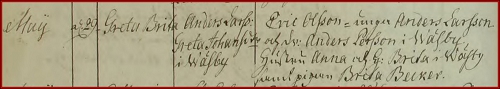 Maÿ 29. Greta Brita Anders Larss: Eric Olsson = unge Anders Larsson
Greta Johansdr och dr. Anders Persson i Wäsby
i Wäsby Hustru Anna och h. Brita i Wäsby
samt pigan Brita Becker.